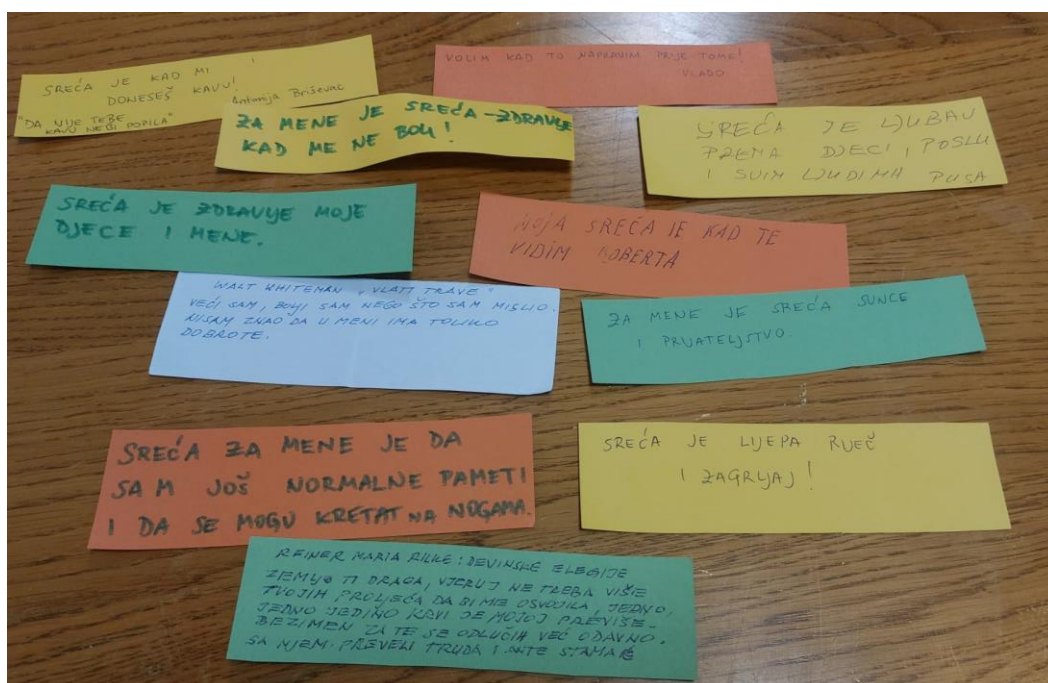 SREĆA JE KAD MI
DONESEŠ KAVU!
"DA NIJE TEBE
KAVU NEBI POPILA"
Antunija Briševac
VOLIM KAD TO NAPRAVIM PRIJE TOME!
VLADO
ZA MENE JE SREĆA - ZDRAVLJE
KAD ME NE BOLI!
SREĆA JE LJUBAV
PREMA DJECI, POSLU
I SVIM LJUDIMA PUSA
SREĆA JE ZDRAVLJE MOJE
DJECE I MENE.
MOJA SREĆA JE KAD TE
VIDIM ROBERTA
WALT WHITEMAN „VLATI TRAVE"
VEĆI SAM, BOLJI SAM NEGO ŠTO SAM MISLIO.
NISAM ZNAO DA U MENI IMA TOLIKO
DOBROTE.
ZA MENE JE SREĆA SUNCE
I PRIJATELJSTVO.
SREĆA ZA MENE JE DA
SAM JOŠ NORMALNE PAMETI
I DA SE MOGU KRETAT NA NOGAMA.
SREĆA JE LIJEPA RIJEČ
I ZAGRLJAJ!
REINER MARIA RILKE: DEVINSKE ELEGIJE
ZEMLJO TI DRAGA, VJERUJ NE TREBA VIŠE
TVOJIH PROLJEĆA DA BI ME OSVOJILA, JEDNO,
JEDNO JEDINO KRVI JE MOJOJ PREVIŠE.
BEZIMEN ZA TE SE ODLUČIH VEĆ ODAVNO.
SA NJEM. PREVELI TRUDA I ANTE STAMAĆ